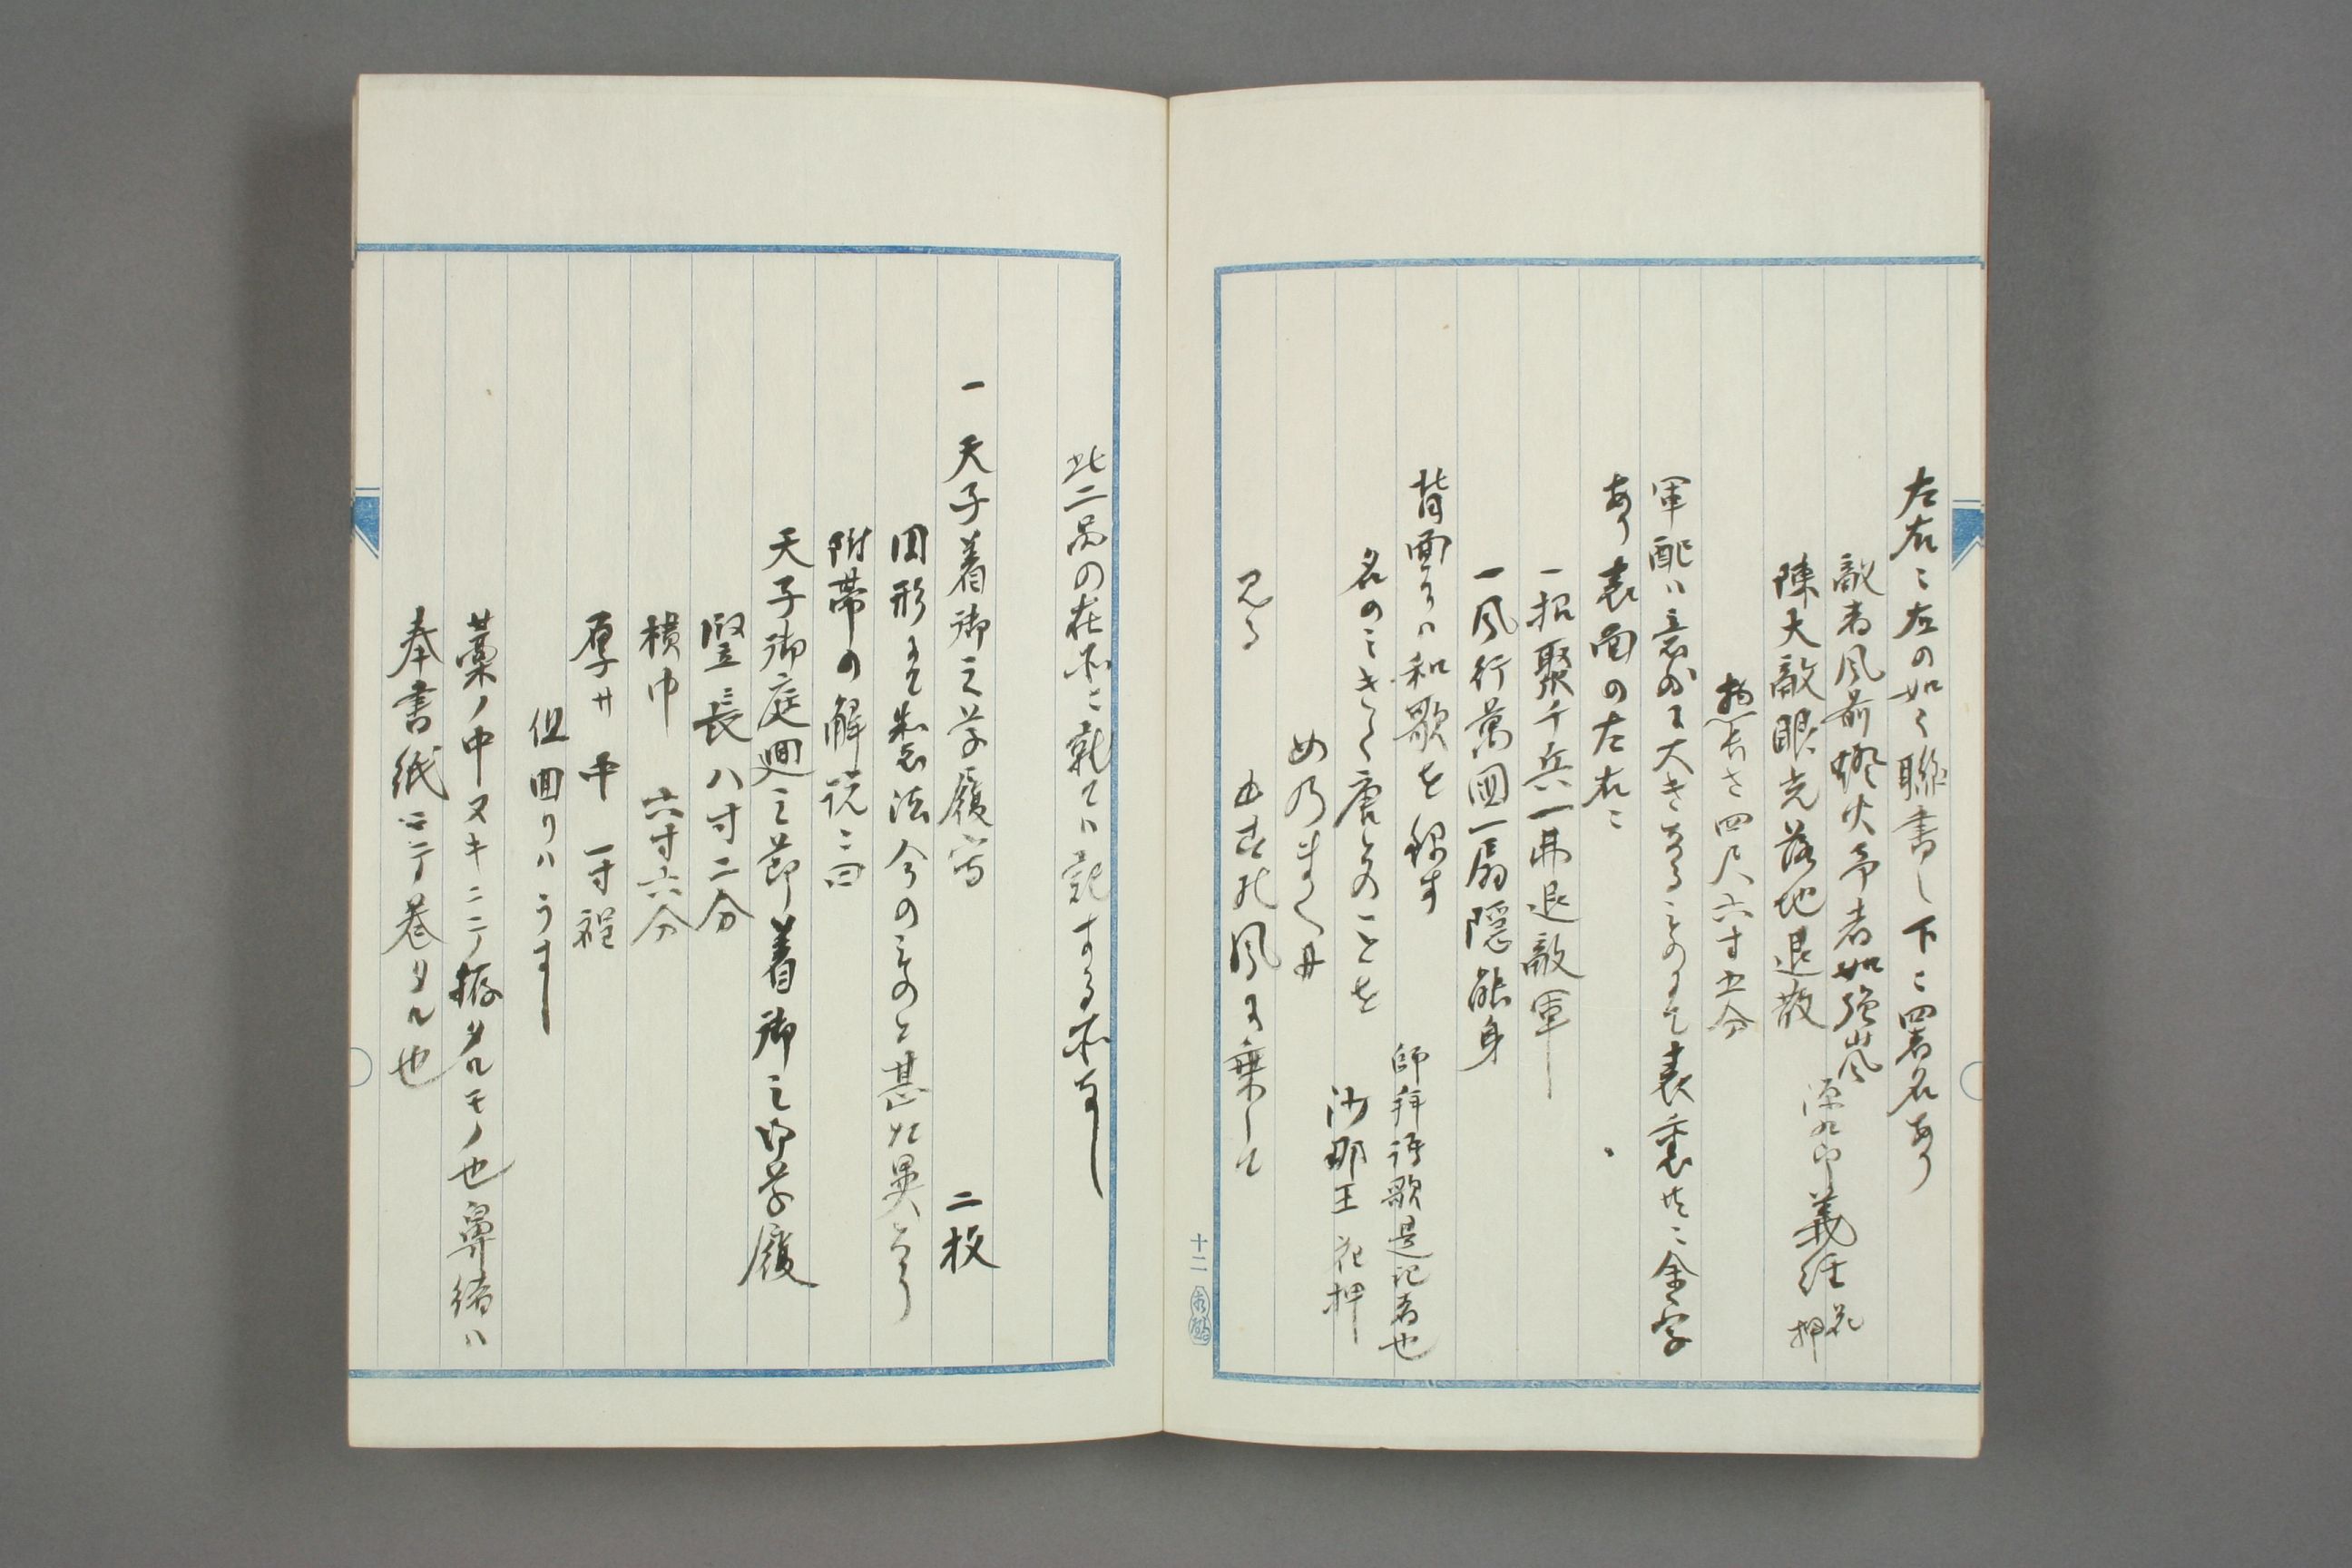 左右ニ左の如く聯書し下ニ署名あり
敵者風前燈火予者如強嵐
陳大敵眼光落地退散
源九郎義経花押
惣長さ四尺六寸五分
軍配ハ意外に大きなるものにて表裏共ニ金字
あり表面の左右ニ
一招聚千兵一拂退敵軍
一風行萬国一扇隠能身
背面には和歌を録す
師拜詩歌是記者也
沙那王花押
名のミきく唐土のことを
めのまく
見る 風に乗して
此二品の在所ニ就てハ記する所なし
一天子着御之草履写 二枚
円形にて製法今のものと甚た異なり
附帯の解説ニ曰
天子御庭廻之節着御之御草履
竪ニ長八寸二分
横巾 六寸六分
厚サ中一寸程
但回りハうすし
藁ノ中ヌキニテ拵タルモノ也鼻緒ハ
奉書紙ニテ巻タル也
十二